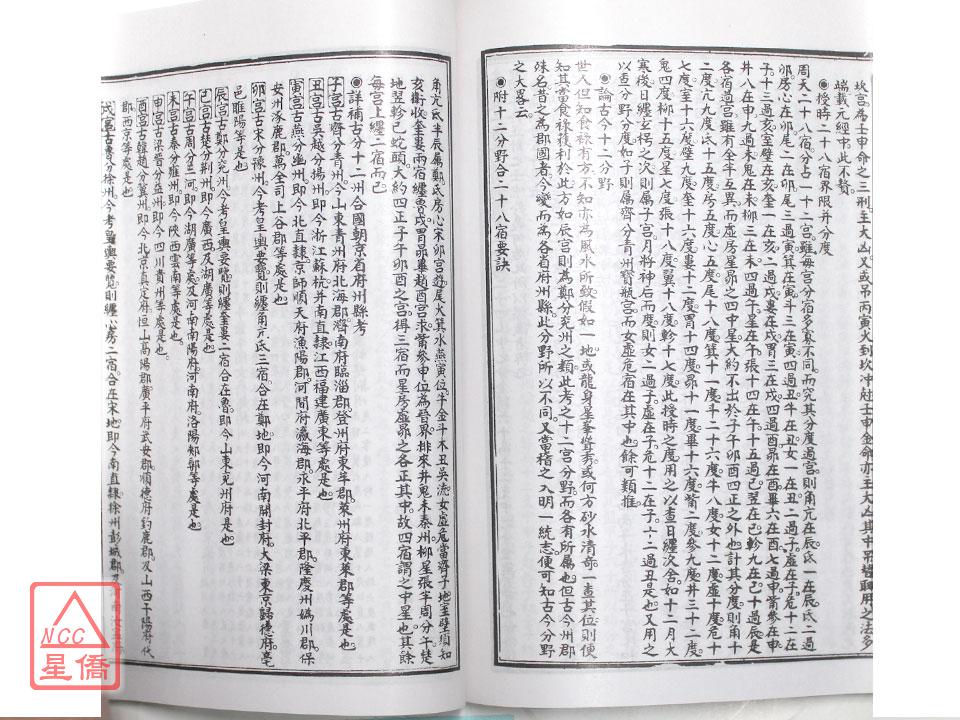 坎宮為壬申命之三刑主大凶又或吊丙寅火到坎冲尅壬申金命亦主大凶其中吊替取用之法多
端載元經中此不贅
◉授時二十八宿界限并分度
周天二十八宿分占一十二宮雖每宮分宿多寡不同而究其分度過宮則角亢在辰氐一在辰氐二過
卯房心在卯尾二在卯尾三過寅箕在寅斗三在寅四過丑牛在丑女一在丑二過子虛在子危十二在
子十三過亥室壁在亥奎一在亥二過戌婁在戌胃三在戌四過酉昴在酉畢六在酉七過申觜參在申
井八在申九過未鬼在未柳三在未四過午星在午張十四在午十五過巳翌在巳軫九在巳十過辰是
各宿過宮雖有全半互異而虛房星昴之四中星大約不出於子午卯酉四正之外也計其分度則角十
二度亢九度氐十五度房五度心五度尾十八度箕十一度斗二十六度牛八度女十二度虛十度危十
七度室十六度壁九度奎十六度婁十二度胃十四度昴十一度畢十六度觜二度參九度井三十二度
鬼四度柳十五度星七度張十八度翼十八度軫十七度此授時之度用之以查日纏次舍如十二月大
寒後日纏玄枵之次則屬子宮月將神后而度則女二過子虛在子危十二在子六二過丑是也又用之
以查分野分度如子則屬齊分青州寶瓶宮而女虛危宿在其中也餘可類推
◉論古今十二分野
世人但知食祿有方不知亦為風水所致假如一地或龍身星峯聳旁或何方砂水清奇一查其位則便
知其當食祿獲利於此方如辰宮則為鄭分兖州之類此考之十二宮分野而各有所屬也但古今州郡
殊名昔之為郡國者今變而為各省府州縣此分野所以不同又當稽之入明一統志便可知古今分野
之大畧云
◉附十二分野合二十八宿要訣
角亢氐半辰屬鄭氐房心宋卯宮遊尾火箕水燕寅位牛金斗木丑吳流女虛危當齊子地室壁須知
亥衛收奎婁兩宿纏魯戌胃昴畢趙酉宮求觜參申位為晉界排來井鬼未秦州柳星張羊周分午楚
地翌軫已蛇頭大約四正子午卯酉之宮得三宿而星房虛昴之各正其中故四宿謂之中星也其餘
每宮上纏二宿而已
◉詳補古分十二州合國朝京省府州縣考
子宮古齊分青州今山東青州府北海郡濟南府臨淄郡登州府東羊郡萊州府東萊郡等處是也
丑宮古吳越分揚州即今浙江蘇杭并南直隸江西福建廣東等處是也
寅宮古燕分幽州即今北直隸京師順天府漁陽郡河間府瀛海郡永平府北平郡隆慶州媯川郡保
安州涿鹿郡萬全司上谷郡等處是也
卯宮古宋分豫州今考皇輿要覽則纏角亢氐三宿合在鄭地即今河南開封府大梁東京歸德府亳
邑睢陽等是也
辰宮古鄭分兖州今考皇輿要覽則纏奎婁二宿合在魯即今山東兖州府是也
巳宮古楚分荆州即今廣西及湖廣等處是也
午宮古周分三河即今湖廣等處及河南南陽府河南府洛陽知郭等處是也
未宮古秦分雍州即今陝西雲南等處是也
申宮古梁晉分益州即今四川貴州等處是也
酉宮古韓趙分冀州即今北京真定府恒山高陽郡廣平府武安郡順德府鉅鹿郡及山西平陽府代
郡西京等處是也
戌宮古魯分徐州今考皇輿要覽則纏心房二宿合在宋地即今南直隸徐州彭城郡及
NCC
星僑